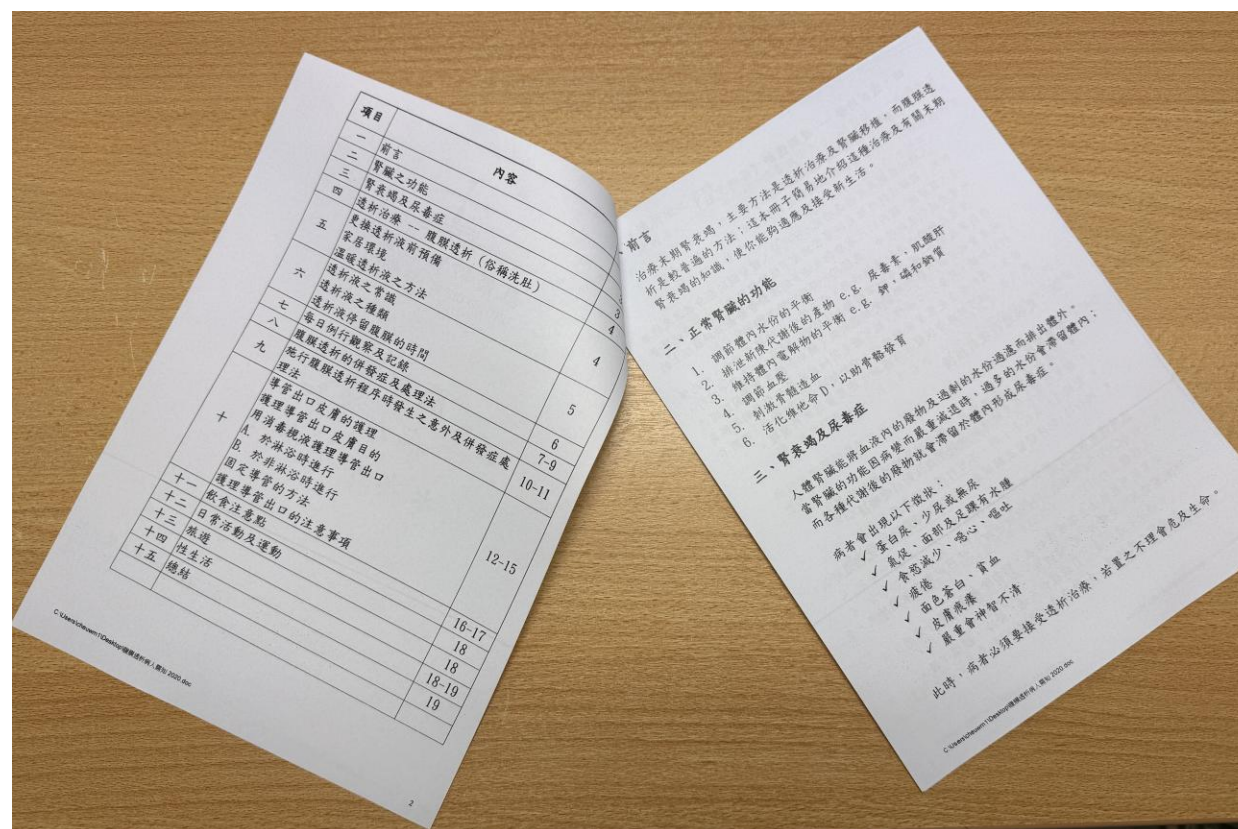 項目
內容
一 前言
二 腎臟之功能
三 腎衰竭及尿毒症
四 透析治療 -- 腹膜透析 (俗稱洗肚)
3
五 更換透析液前預備
家居環境
溫暖透析液之方法
4
六 透析液之常識
透析液之種類
透析液停留腹膜的時間
4
七 每日例行觀察及記錄
5
八 腹膜透析的併發症及處理法
6
九 施行腹膜透析程序時發生之意外及併發症處
理法
7-9
10-11
十 導管出口皮膚的護理
護理導管出口皮膚目的
用消毒稅液護理導管出口
A. 於淋浴時進行
B. 於非淋浴時進行
固定導管的方法
護理導管出口的注意事項
12-15
十一 飲食注意點
16-17
十二 日常活動及運動
18
十三 旅遊
18
十四 性生活
18-19
十五 總結
19
2
前言
治療末期腎衰竭，主要方法是透析治療及腎臟移植，而腹膜透
析是較普遍的方法；這本冊子簡易地介紹這種治療及有關末期
腎衰竭的知識，使你能夠適應及接受新生活。
二、正常腎臟的功能
1. 調節體內水份的平衡
2. 排泄新陳代謝後的產物 e.g. 尿毒素、肌酸肝
3. 維持體內電解物的平衡 e.g. 鉀，磷和鈉質
4. 調節血壓
5. 刺激骨髓造血
6. 活化維他命 D，以助骨骼發育
三、腎衰竭及尿毒症
人體腎臟能將血液內的廢物及過剩的水份過濾而排出體外。
當腎臟的功能因病變而嚴重減退時，過多的水份會滯留體內；
而各種代謝後的廢物就會滯留於體內形成尿毒症。
病者會出現以下徵狀：
✓ 蛋白尿、少尿或無尿
✓ 氣促、面部及足踝有水腫
✓ 食慾減少、噁心、嘔吐
✓ 疲倦
✓ 面色蒼白、貧血
✓ 皮膚痕癢
✓ 嚴重會神智不清
此時，病者必須要接受透析治療，若置之不理會危及生命。